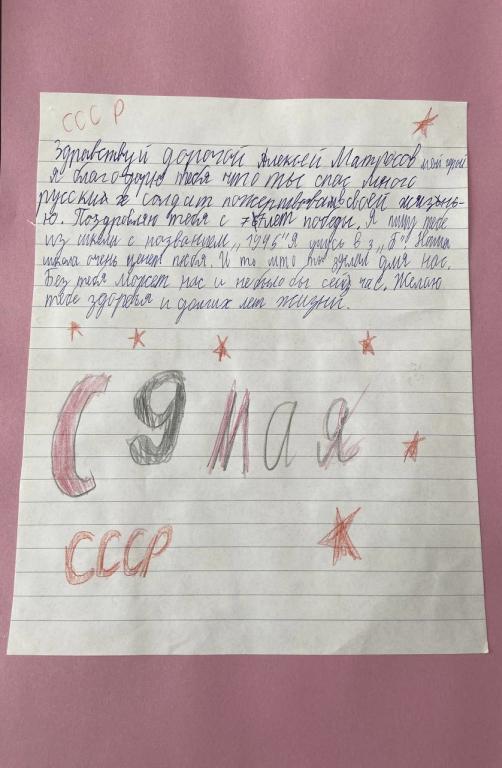 СССР
Здравствуй дорогой Алексей Матросов мой герой
я благодорю тебя что ты спас много
русских солдат пожертвовав своей жизнь-
ю. Поздровляю тебя с лет победы. Я пишу тебе
из школы с названием „1946" Я учусь в 3 „Б" Наша
школа очень ценет тебя. И то что ты делал для нас.
Без тебя может нас и небыло бы сейчас. Желаю
тебе здоровья и долгих лет жизни.
С 9 Мая
СССР